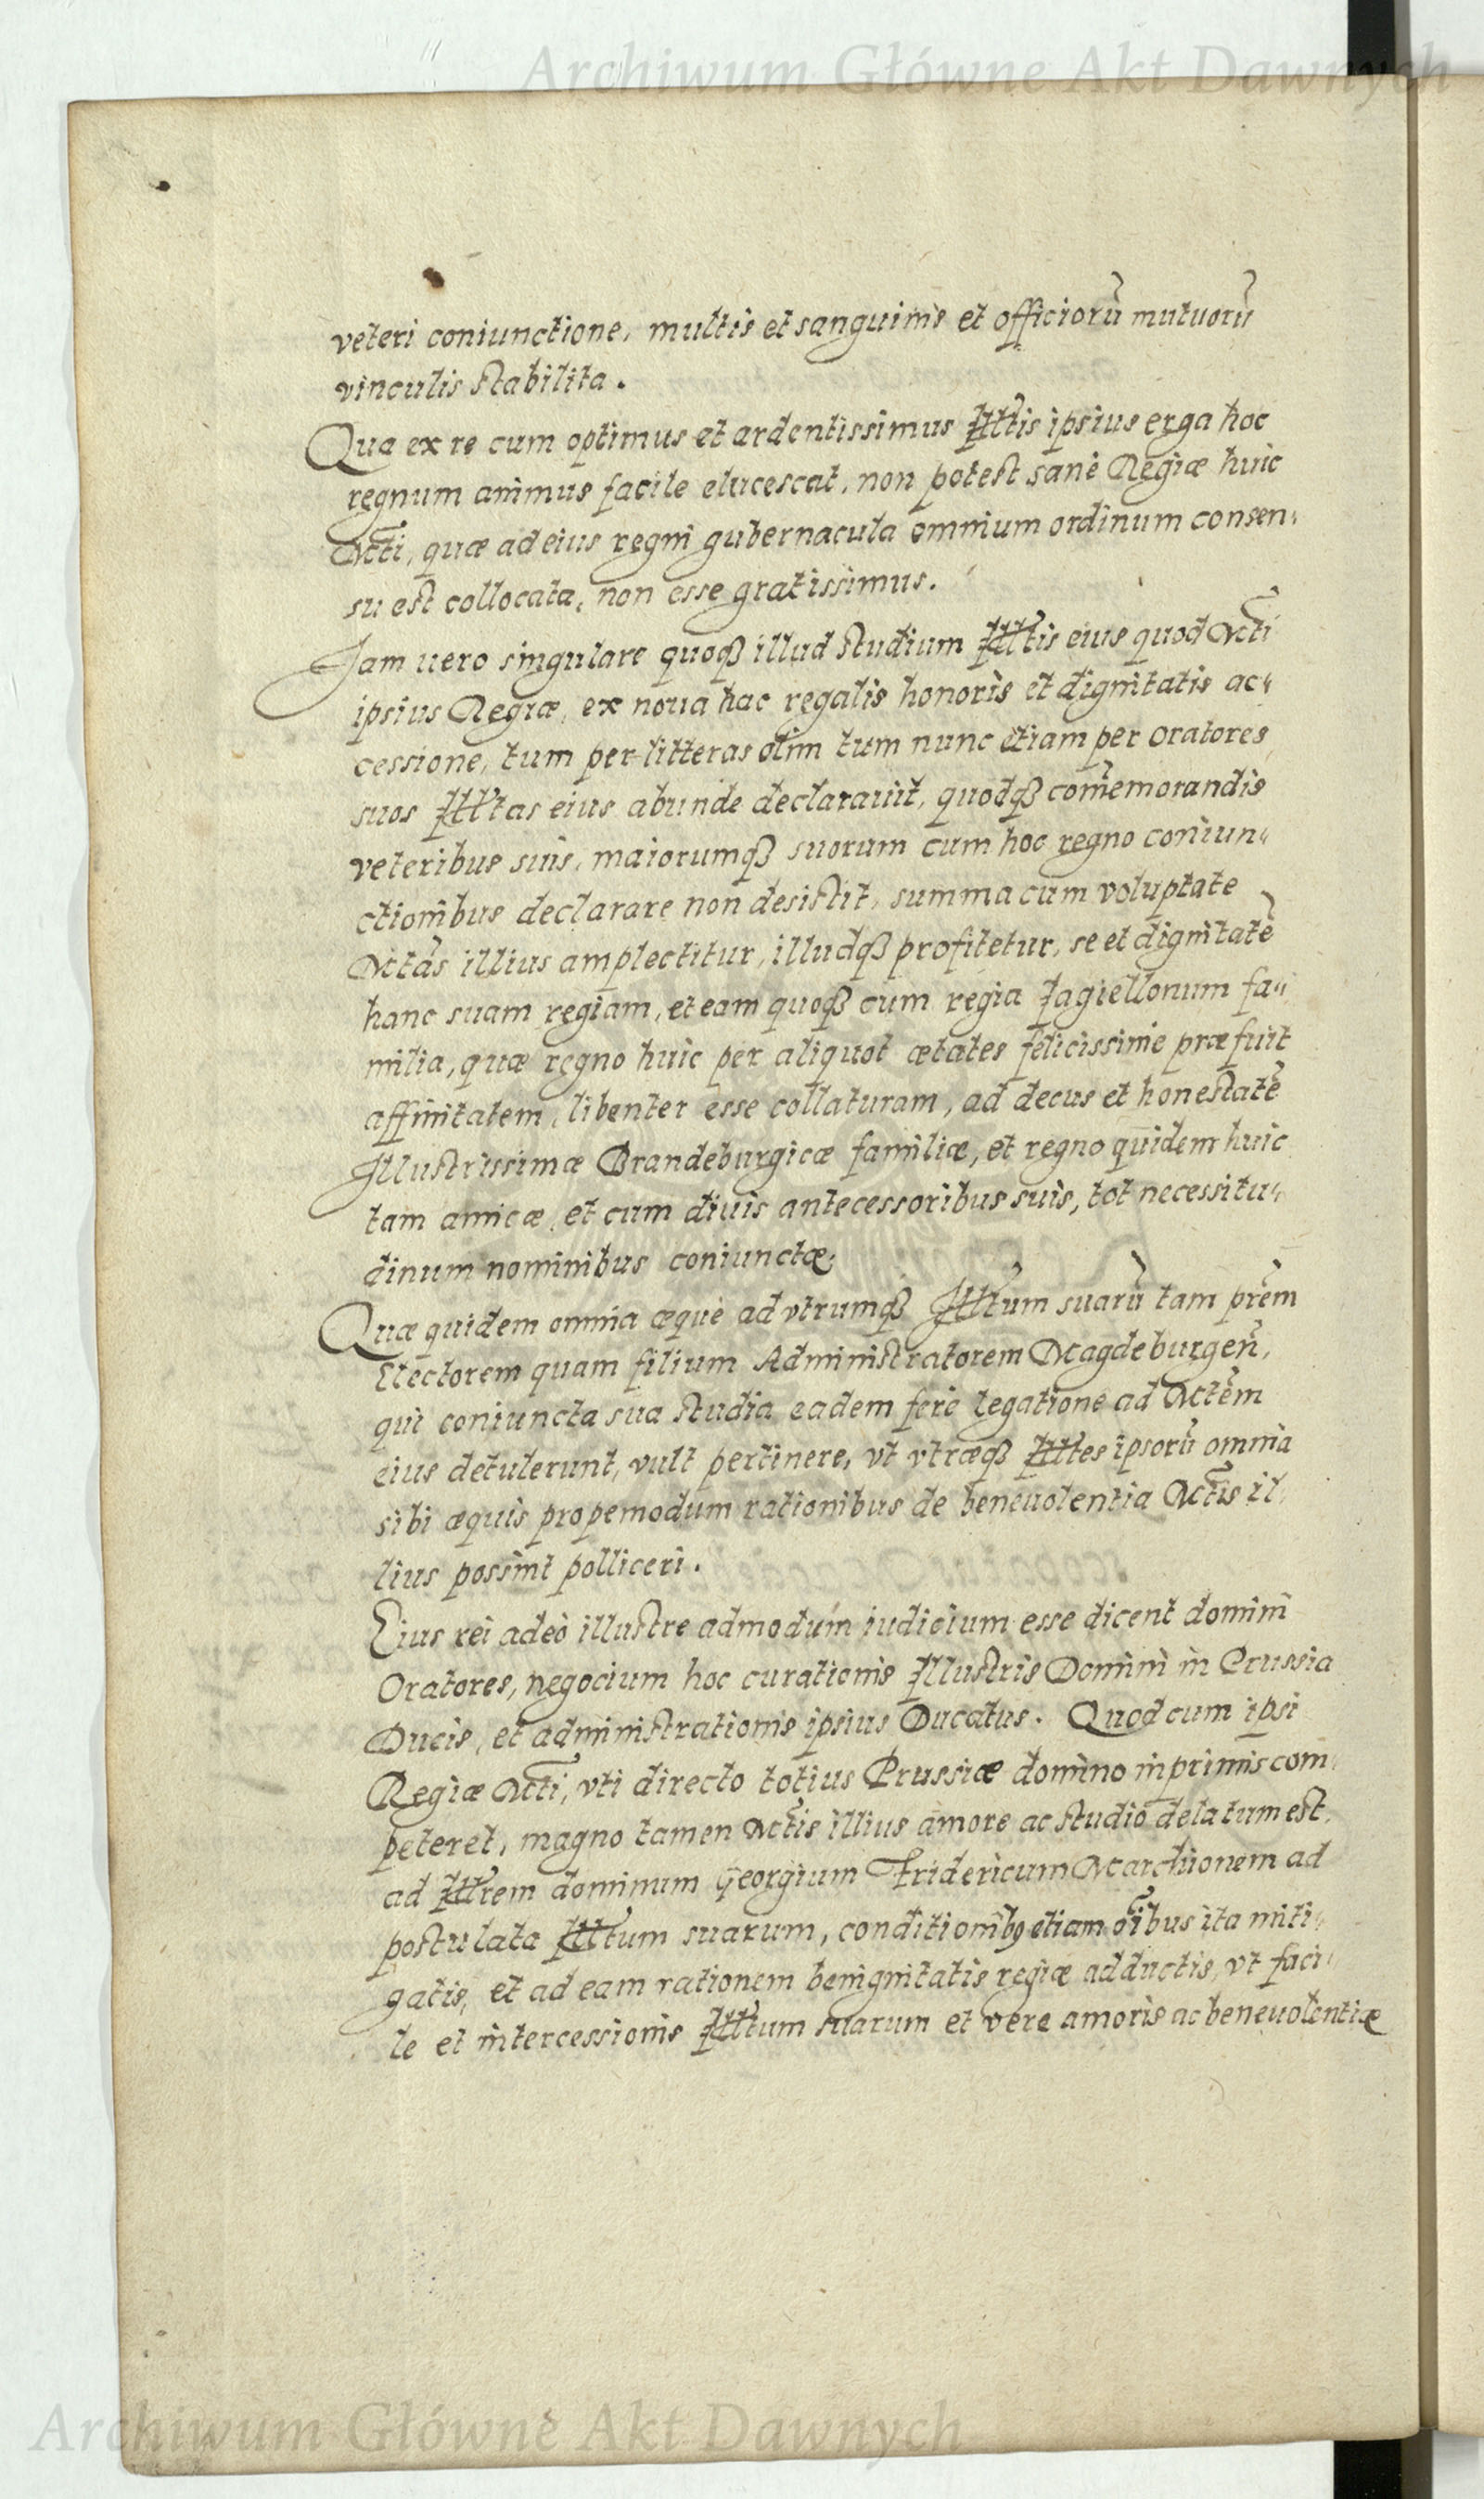 Archiwum Główne Akt Dawnych
veteri coniunctione, multis et sanguinis et officiorũ mutuorũ
vinculis stabilita.
Qua ex re cum optimus et ardentissimus Illtis ipsius erga hoc
regnum animus facile elucescat, non potest sanè Regiæ huic
Mtti, quæ ad eius regni gubernacula omnium ordinum consen-
su est collocata, non esse gratissimus.
Jam uero singulare quoqꝫ illud studium Illtis eius quod Mtti
ipsius Regiæ, ex noua hac regalis honoris et dignitatis ac-
cessione, tum per litteras olim tum nunc etiam per oratores
suos Illtas eius abunde declarauit, quodqꝫ com̃emorandis
veteribus suis, maiorumqꝫ suorum cum hoc regno coniun-
ctionibus declarare non desistit, summa cum voluptate
Mttas illius amplectitur, illudqꝫ profitetur, se et dignitatẽ
hanc suam regiam, et eam quoqꝫ cum regia Jagiellonum fa-
milia, quæ regno huic per aliquot ætates felicissime præfuit
affinitatem, libenter esse collaturam, ad decus et honestatẽ
Illustrissimæ Brandeburgicæ familiæ, et regno quidem huic
tam amicæ, et cum diuis antecessoribus suis, tot necessitu-
dinum nominibus coniunctæ.
Quæ quidem omnia æque ad vtrumqꝫ Illtum suarũ tam pr̃em
Electorem quam filium Administratorem Magdeburgeñ,
qui coniuncta sua studia eadem fere legatione ad Mttem
eius detulerunt, vult pertinere, vt vtræqꝫ Illtes ipsorũ omnia
sibi æquis propemodum rationibus de beneuolentia Mttis il-
lius possint polliceri.
Eius rei adeò illustre admodum iudicium esse dicent domini
Oratores, negocium hoc curationis Illustris Domini in Prussia
Ducis, et administrationis ipsius Ducatus. Quod cum ipsi
Regiæ Mtti, vti directo totius Prussiæ domino inprimis com-
peteret, magno tamen Mttis illius amore ac studio delatum est,
ad Illrem dominum Georgium Fridericum Marchionem ad
postulata Illtum suarum, conditionibꝫ etiam oĩbus ita miti-
gatis, et ad eam rationem benignitatis regiæ adductis, vt faci-
le et intercessionis Illtum suarum et vere amoris ac beneuolentiæ
Archiwum Główne Akt Dawnych